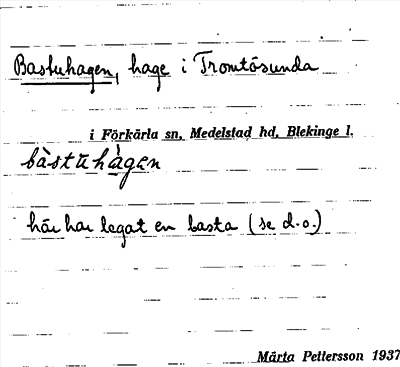 Bastuhagen, hage i Tromtösunda
i Förkärla sn, Medelstad hd, Blekinge l.
bàstūhàgen
här har legat en basta (se d.o.)
Märta Pettersson 1937